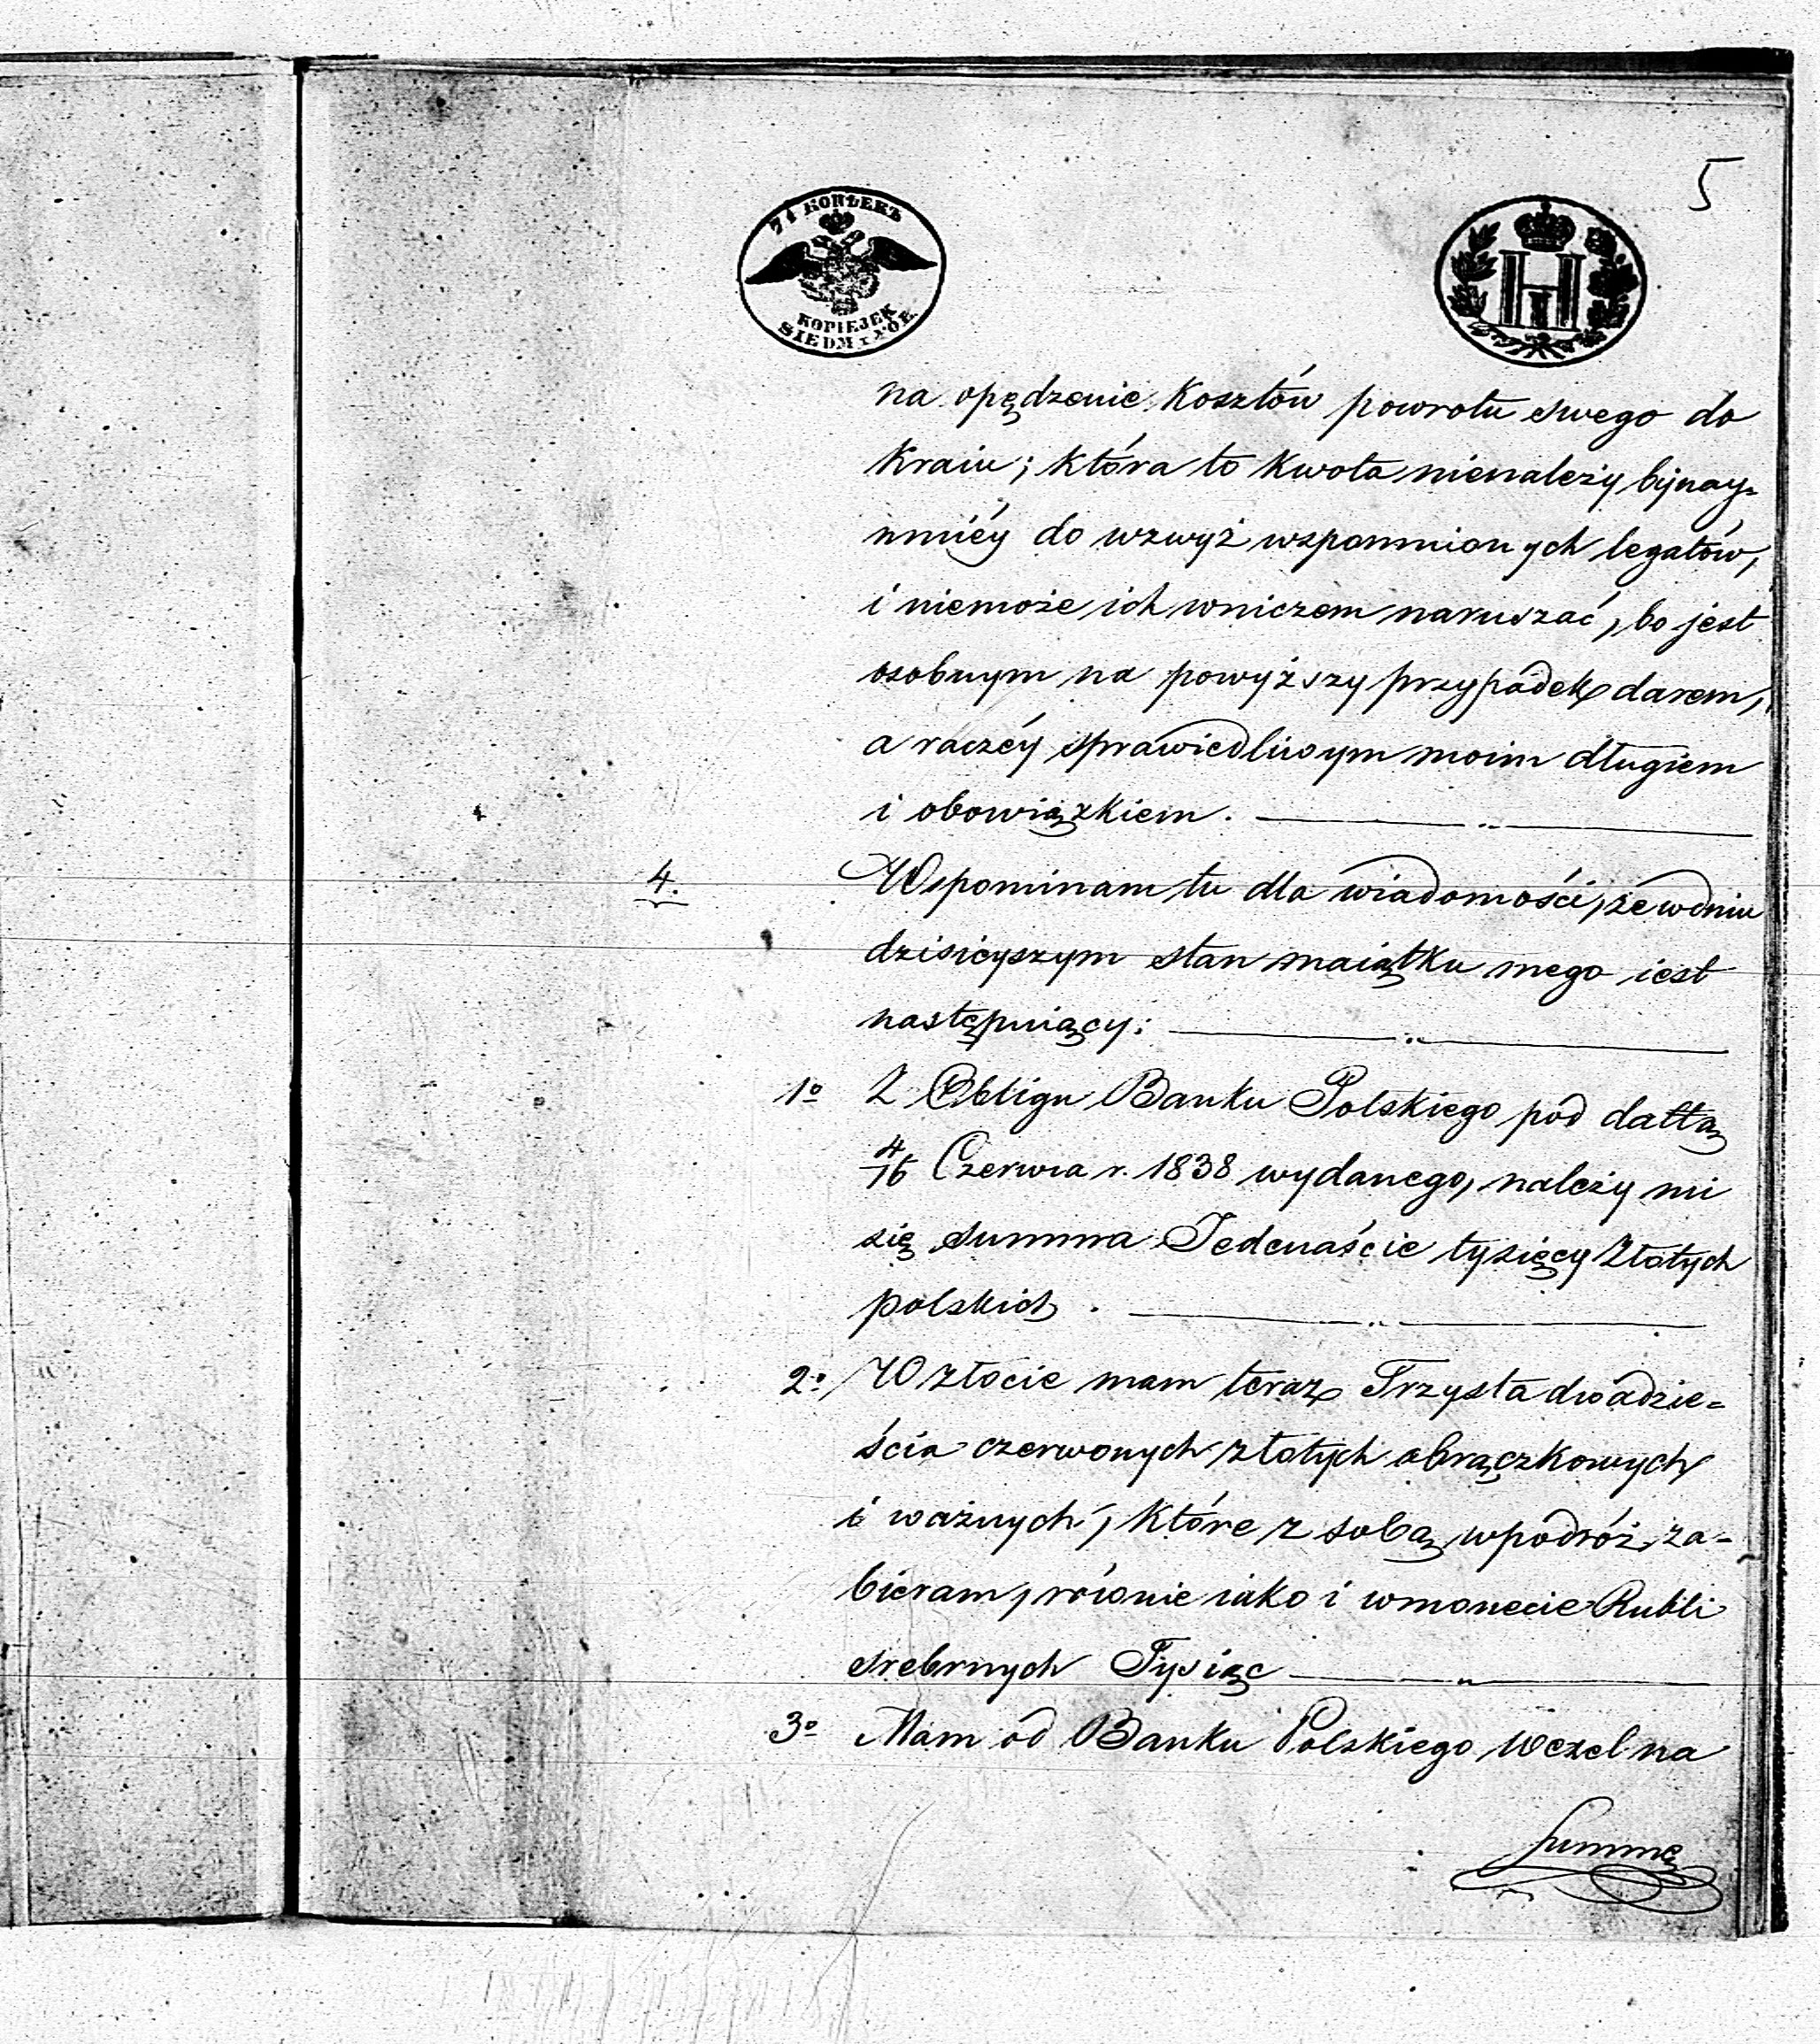 5
7½ КОПѢЕКЪ
KOPIEJEK
SIEDM i PÓŁ
H
na opędzenie kosztów powrotu swego do
kraiu; która to kwota nienależy bynay=
mniéy do wzwyż wspomnionych legatów,
i niemoże ich wniczem naruszać, bo jest
osobnym na powyższy przypadek darem,
a raczéy sprawiedliwym moim długiem
i obowiązkiem.
4. Wspominam tu dla wiadomości, że wdniu
dzisieyszym stan maiątku mego iest
następuiący:
1º Z Obligu Banku Polskiego pod dattą
4/16 Czerwca r. 1838 wydanego, należy mi
się summa Jedenaście tysięcy Złotych
polskich.
2º W złocie mam teraz Trzysta dwadzie=
ścia czerwonych złotych obrączkowych
i ważnych, które z sobą wpodróż za-
bieram, równie iako i wmonecie Rubli
srebrnych Tysiąc
3º Mam od Banku Polskiego Wexel na
summę